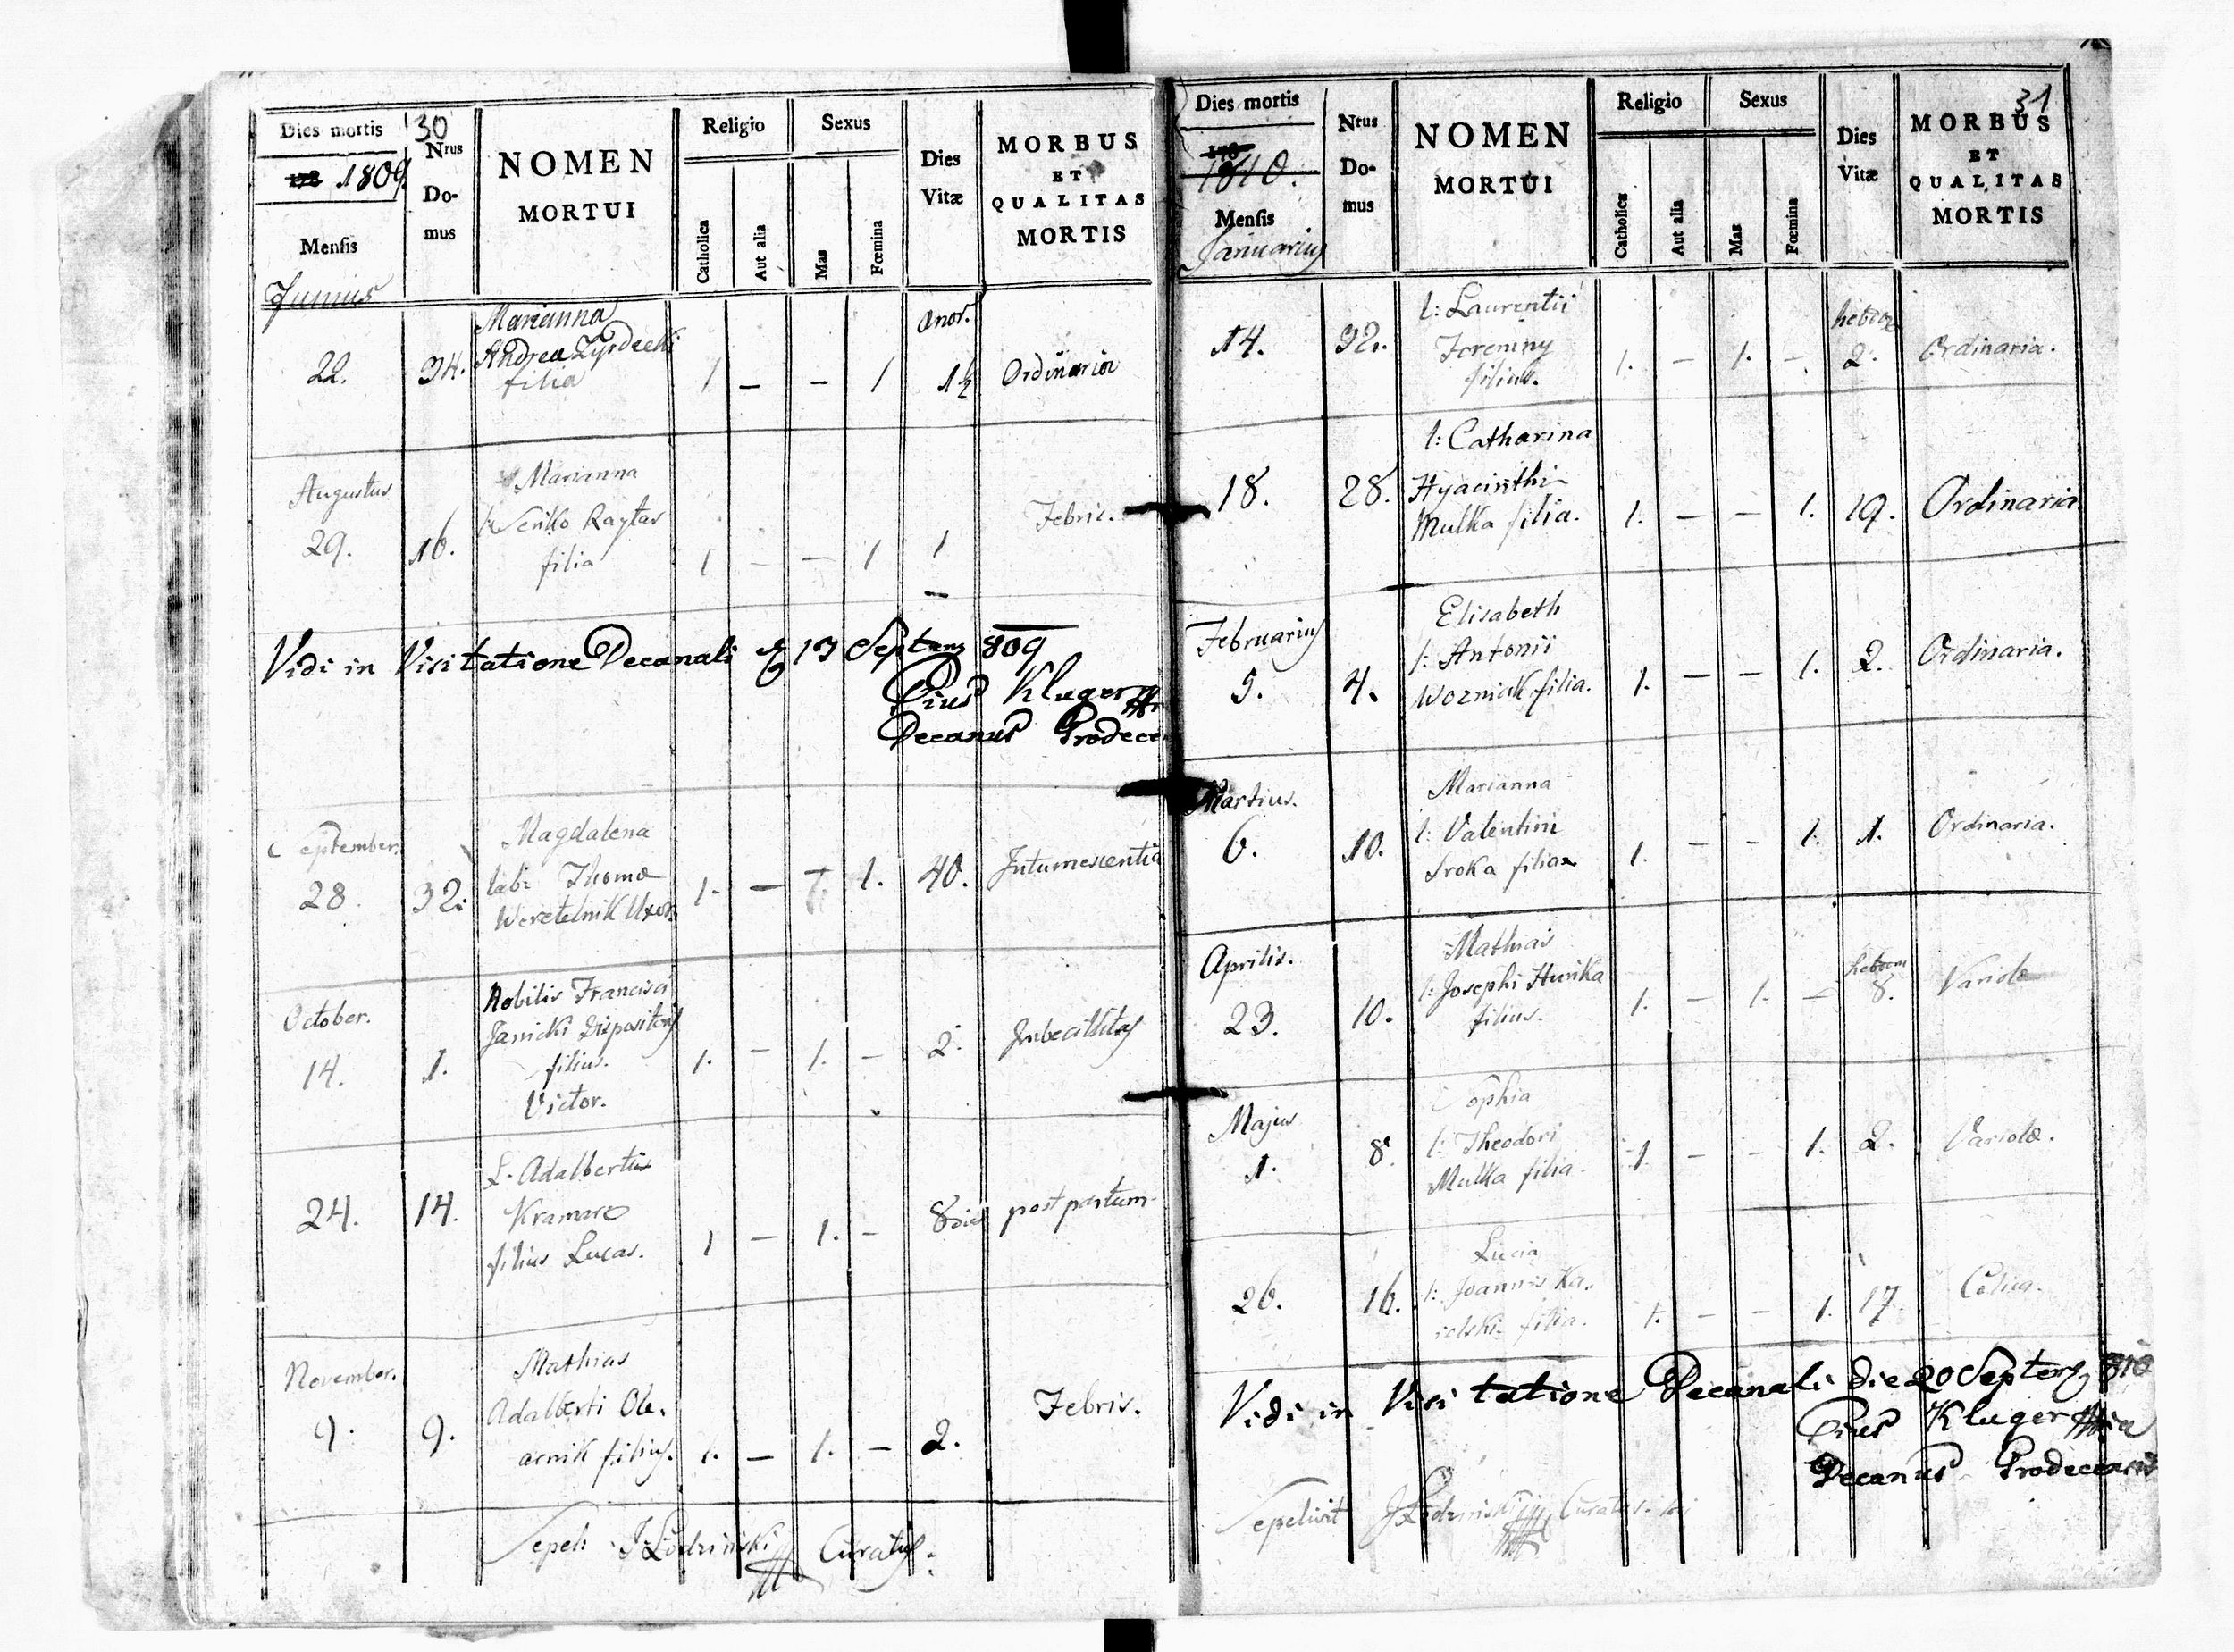 30
Dies mortis
1809
Mensis
Junius
Nrus
Do-
mus
NOMEN
MORTUI
Religio
Catholica
Aut alia
Sexus
Mas
Fœmina
Dies
Vitæ
MORBUS
ET
QUALITAS
MORTIS
Marianna
22. 34. Andrea
filia 1 – – 1 1½ Ordinaria
Augustus
29. 16.
Marianna
Raytar
filia 1 – – 1 1 Febris.
Vidi in Visitatione Decanali 13 Septem 809
Pius Kluger
Decanus Grodece
September.
28. 32.
Magdalena
lab: Thomæ
Weretelnik Uxor. 1. – 1. 40. Intumescentia
October.
14. 1.
Nobilis Francisci
Janicki Dispositoris
filius.
Victor. 1. – 1. – 2. Imbecillitas
24. 14.
L. Adalberti
Kramarz
filius Lucas. 1 – 1. – 8 die post partum
November.
9. 9.
Mathias
Adalberti Ole.
acnik filius. 1. – 1. – 2. Febris.
Sepeli J Łodziński Curatus.
31
Dies mortis
1810.
Mensis
Januarius
Nrus
Do-
mus
NOMEN
MORTUI
Religio
Catholica
Aut alia
Sexus
Mas
Fœmina
Dies
Vitæ
MORBUS
ET
QUALITAS
MORTIS
14. 32.
l: Laurentii
filius. 1. – 1. – hebdom 2. Ordinaria.
18. 28.
l: Catharina
Hyacinthi
Mulka filia. 1. – – 1. 19. Ordinaria
Februarius
5. 4.
Elisabeth
l: Antonii
Wozniak filia. 1. – – 1. 2. Ordinaria.
Martius.
6. 10.
Marianna
l: Valentini
Sroka filia 1. – – 1. 1. Ordinaria.
Aprilis.
23. 10.
Mathias
l: Josephi Hunka
filius. 1. – 1. – hebdom 8. Variolæ
Majus
1. 8.
Sophia
l: Theodori
Mulka filia. 1. – – 1. 2. Variolæ.
26. 16.
Lucia
l: Joannis Ka.
filia. 1. – – 1. 17
Vidi in Visitatione Decanali die 20 Septem 810
Pius Kluger
Decanus Grodecensis
Sepelivit J Łodziński Curatus